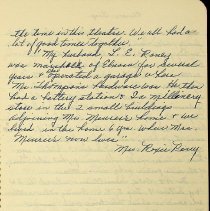 the time in this theatre. We all had a
lot of good times together.
My husband, L. E. Raney
was marshall of Elmore for several
years & operated a garage where
Mr. Thompsons hardware was. He then
had a battery station & I a millinery
store in the 2 small buildings
adjoining Mr. Menser's home & we
lived in the home 6 yrs. where Max
Menser's now live."
Mrs. Roxie Raney